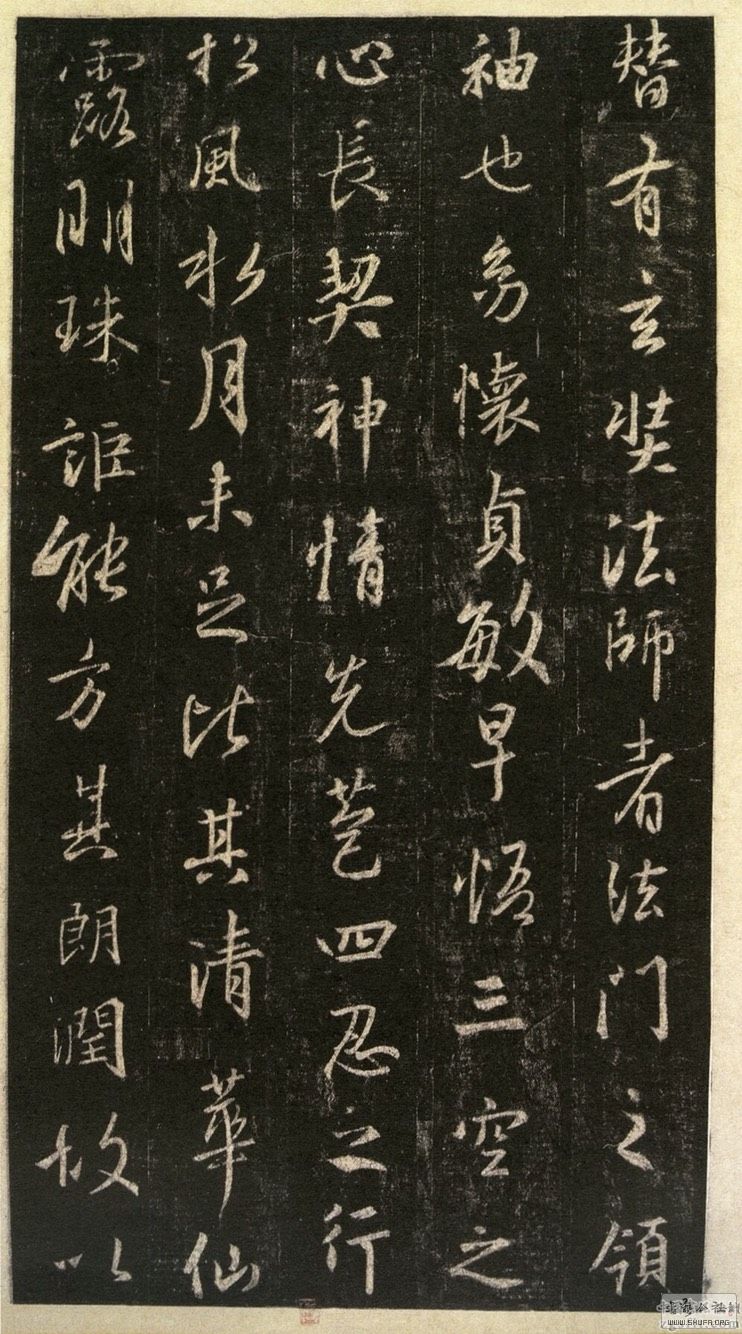 替有玄奘法師者法門之領
袖也幼懷貞敏早悟三空之
心長契神情先苞四忍之行
松風水月未足比其清華仙
露明珠詎能方其朗潤故以
WWW.SHUFA.ORG